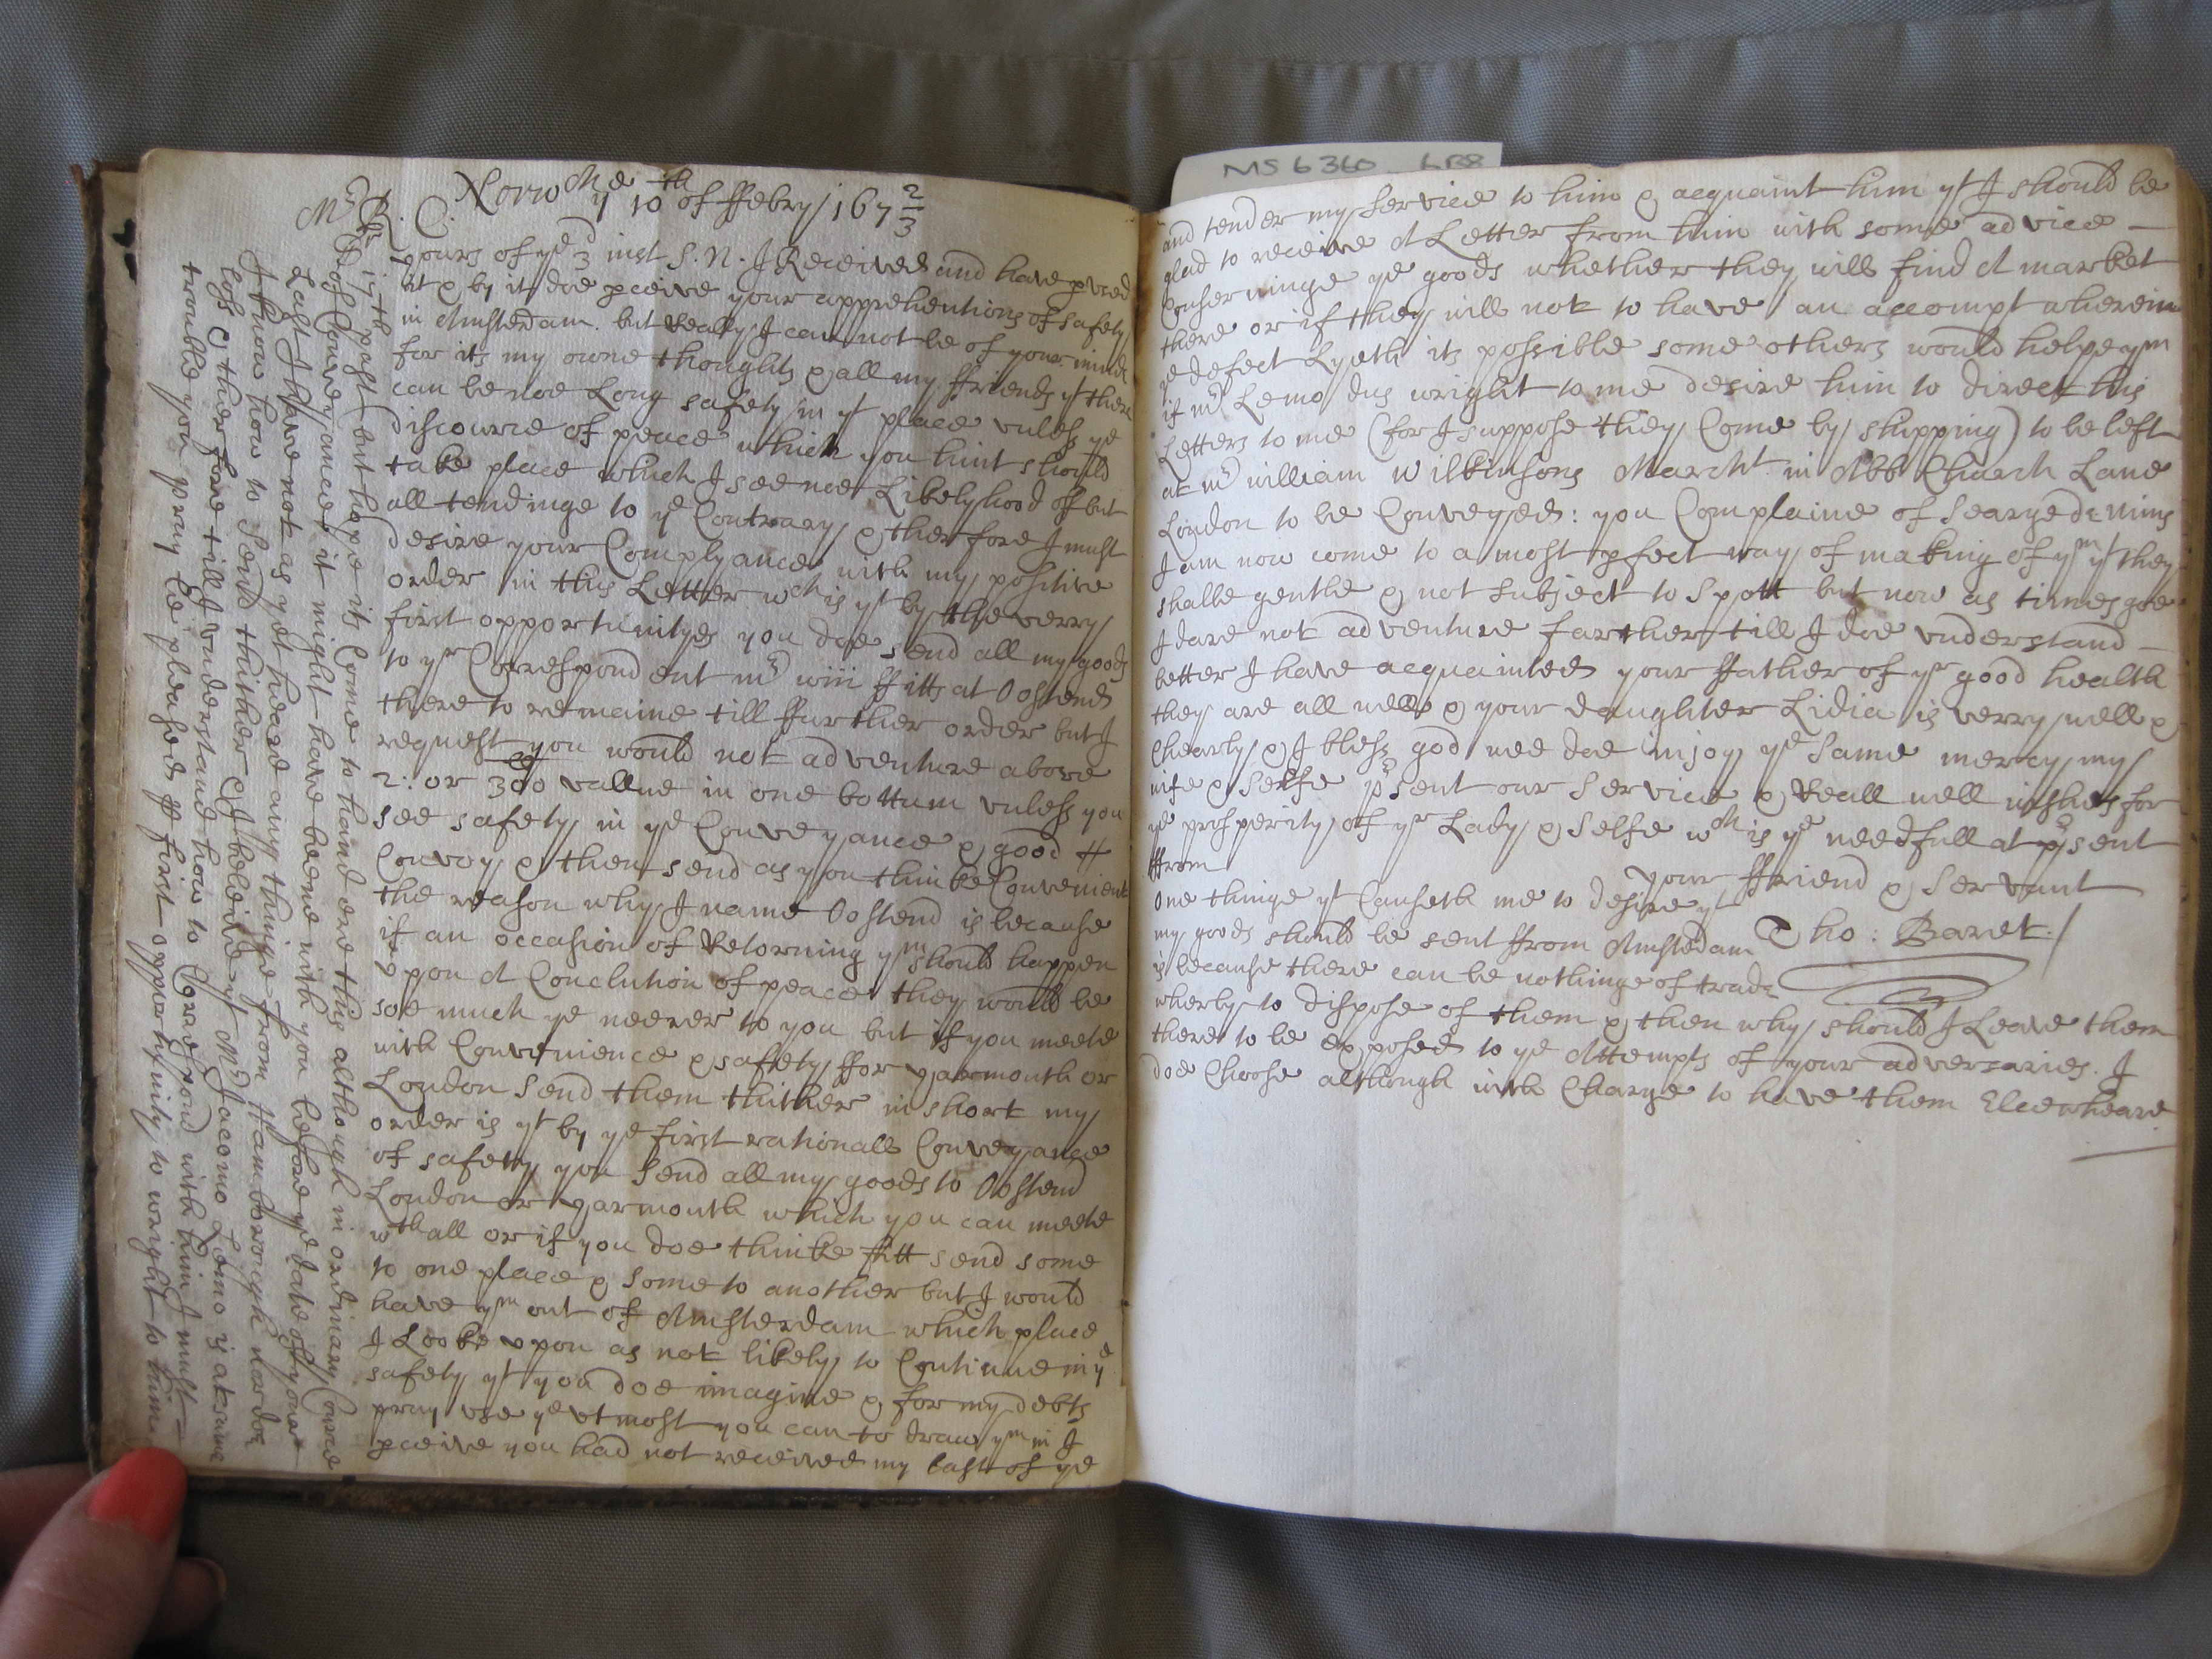 MS 6360 6B8
Norwch ye 10th of ffebry 167 2/3
Mr R. C.
Sr yours of ye 3d inst S. N. I Received and have pvsed
it & by it doe pceive your apprehentions of safety
in Amsterdam. but Really I can not be of your minde
for its my owne thoughts & all my ffriends yt there
can be noe Long safety in yt place vnless ye
discource of peace which you hint should
take place which I see noe Likelyhood off but
all tendinge to ye Contrary & therfore I must
desire your Complyance with my positive
order in this Letter wch is yt by the verry
first opportunityes you doe send all my goods
to yr Correspondent mr Wm ffitts at Oostend
there to remaine till ffurther order but I
request you would not adventure above
2: or 300 vallue in one bottum vnless you
see safety in ye Conveyance & good
Convoy & then send as you thinke Convenient
the reason why I name Oostend is because
if an occasion of Retorning ym should happen
vpon A Conclution of peace they would be
soe much ye neerer to you but if you meete
with Convenience & safety ffor yarmouth or
London Send them thither in short my
order is yt by ye first rationall Conveyance
of safety you Send all my goods to Oostend
London or yarmouth which you can meete
wthall or if you doe thinke fitt send some
to one place & some to another but I would
have ym out of Amsterdam which place
I Looke vpon as not likely to Continue in ye
safety yt you doe imagine & for my debts
pray vse ye vtmost you can to draw ym in I
pceive you had not received my last of ye
17th past but hope its Come to hand ere this although in ordinary Cource
of Conveyance it might have beene with you before ye date of your
Last I have not as yet heard any thinge from Hamborough nor doe
I know how to Send thither & I beleive yt Mr Jacomo Lemo is at some
loss & therfore till I vnderstand how to Corraspond with him I must
trouble you pray be pleased ye first opportunity to wright to him
and tender my service to him & acquaint him yt I should be
glad to receive A Letter from him with some advice
Conserninge ye goods whether they will find A market
there or if they will not to have an accompt wherein
ye defect Lyeth its possible some others would helpe ym
if mr Lemo dus wright to me desire him to direct his
Letters to me (for I suppose they Come by shipping) to be left
at mr william Wilkinsons Marcht in Abb Church Lane
London to be Conveyed: you Complaine of Searge denims
I am now come to a most pfect way of making of ym yt they
shalbe gentle & not subject to Spott but now as times goe
I dare not adventure farther till I doe vnderstand
better I have acquainted your ffather of yr good health
they are all well & your daughter Lidia is verry well &
Chearly & I bless god wee doe injoy ye same mercy my
wife & selfe psent our Service & Reall well wishes for
ye prosperity of yr Lady & selfe wch is ye needfull at psent
ffrom
your ffriend & Servant
Tho: Baret./
One thinge yt Causeth me to desire yt
my goods should be sent ffrom Amsterdam
is because there can be nothinge of trade
wherby to dispose of them & then why should I Leave them
there to be exposed to ye Attempts of your adversaries. I
doe Choose although with Charge to have them Elcewheare